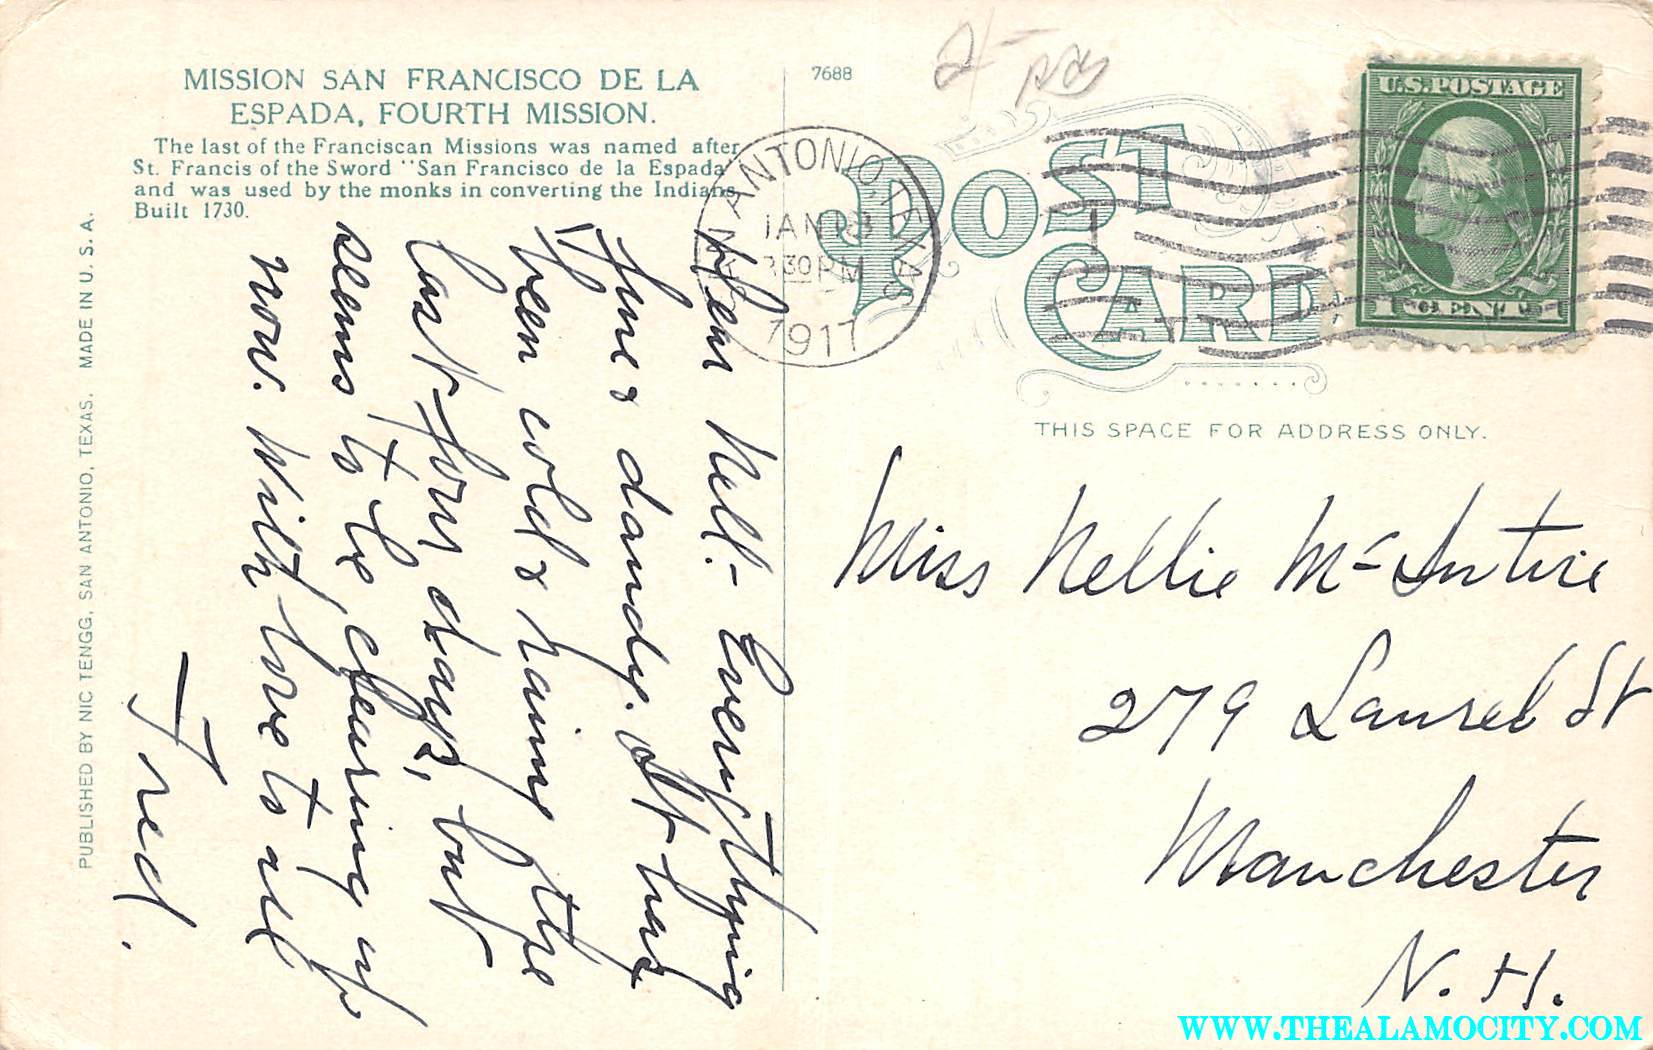 MISSION SAN FRANCISCO DE LA
ESPADA, FOURTH MISSION.
The last of the Franciscan Missions was named after
St. Francis of the Sword "San Francisco de la Espada"
and was used by the monks in converting the Indians.
Built 1730.
PUBLISHED BY NIC TENGG, SAN ANTONIO, TEXAS. MADE IN U. S. A.
Dear Nell:- Everything
fine & dandy. It has
been cold & raining the
last four days, but
seems to be clearing up
now. With love to all
Fred.
7688
SAN ANTONIO, TEXAS
JAN 13
30 PM
1917
POST
CARD
U.S. POSTAGE
1 CENT 1
THIS SPACE FOR ADDRESS ONLY.
Miss Nellie McIntire
279 Laurel St
Manchester
N. H.
WWW.THEALAMOCITY.COM